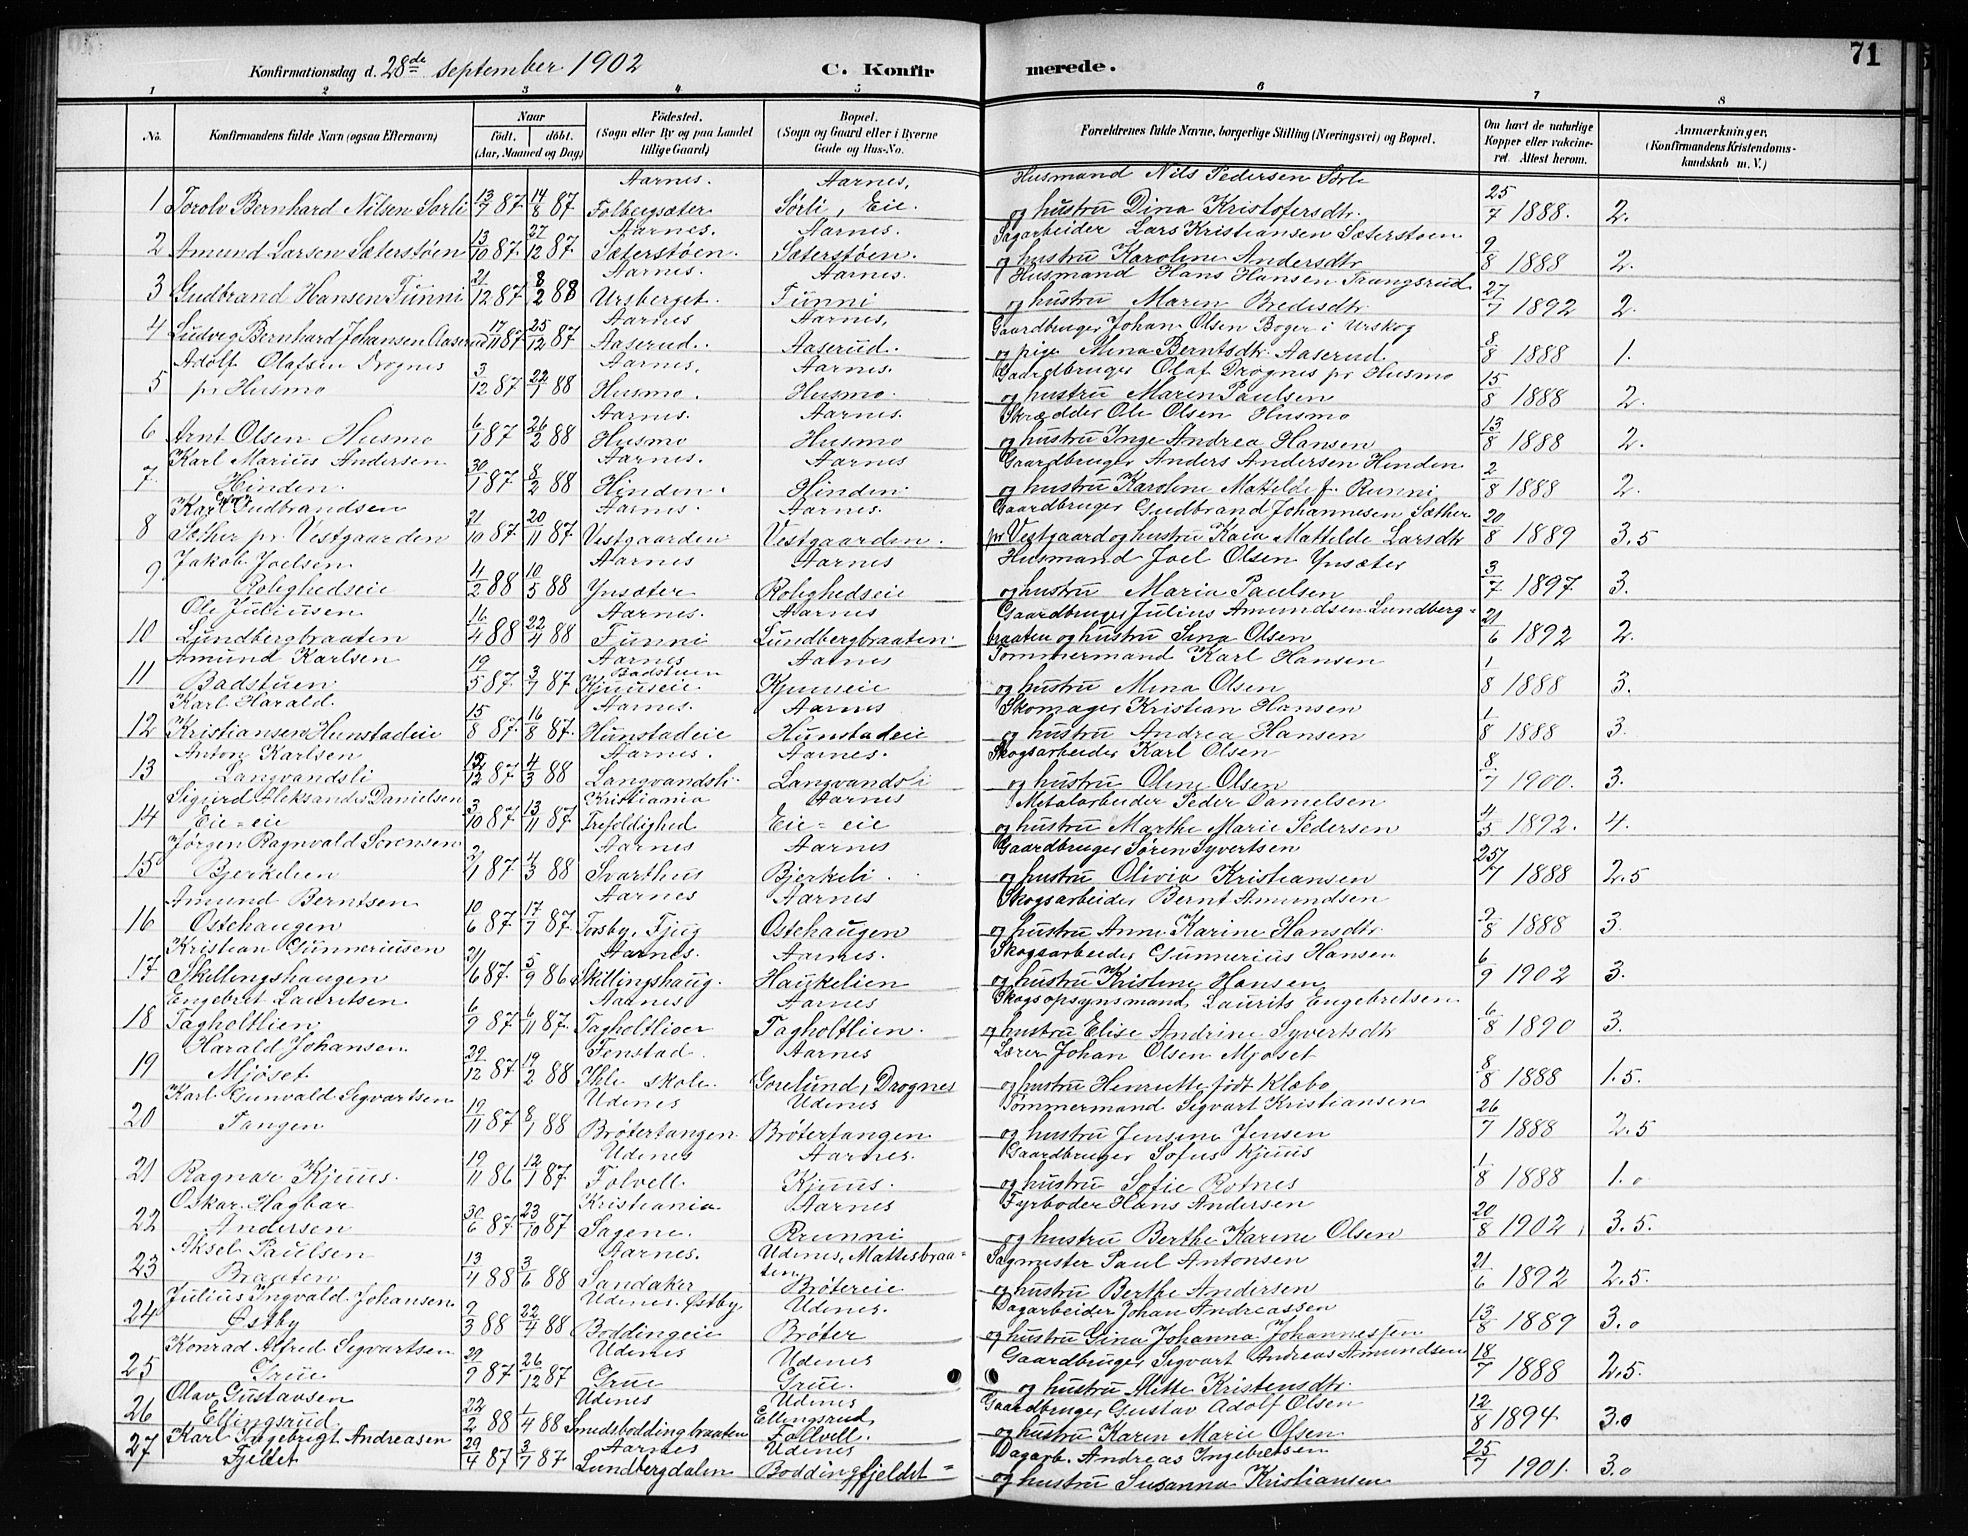 71
Konfirmationsdag d. 28de september 1902 C. Konfirmerede.
1 2 3 4 5 6 7 8
No. Konfirmandens fulde Navn (ogsaa Efternavn) Naar født, døbt. (Aar, Maaned og Dag) Fødested. (Sogn eller By og paa Landet tillige Gaard) Bopæl. (Sogn og Gaard eller i Byerne Gade og Hus-No. Forældrenes fulde Navne, borgerlige Stilling (Næringsvei) og Bopæl. Om havt de naturlige Kopper eller vakcineret. Attest herom. Anmærkninger. (Konfirmandens Kristendomskundskab m. V.)
Aarnes. Aarnes, Husmand Nils Pedersen Sörli
1 Torolv Bernhard Nilsen Sörli 13/7 87 14/8 87 Folbergsæter Sörli, Eie. og hustru Dina Kristofersdtr. 25/7 1888. 2.
Aarnes. Aarnes. Sagarbeider Lars Kristiansen Sæterstøen
2 Amund Larsen Sæterstøen 13/10 87 27/12 87 Sæterstøen. Sæterstøen. og hustru Karoline Andersdtr 9/8 1888 2.
Aarnes. Aarnes. Husmand Hans Hansen Trangsrud
3 Gudbrand Hansen Funni 21/12 87 8/2 88 Ursberget. Funni og hustru Maren Bredesdtr 27/7 1892 2.
Aarnes Aarnes, Gaardbruger Johan Olsen Boger i Urskog
4 Ludvig Bernhard Johansen Aaserud 17/11 87 25/12 87 Aaserud. Aaserud. og pige Mina Berntsdtr. Aaserud. 8/8 1888 1.
Adolf Olafsen Drognes Aarnes. Aarnes. Gaardbruger Olaf Drognes pr Husmo
5 pr Husmo 3/12 87 22/1 88 Husmo. Husmo. og hustru Maren Paulsen 15/8 1888 2.
Aarnes. Aarnes. Skrædder Ole Olsen Husmo
6 Arnt Olsen Husmo 6/1 87 26/2 88 Husmo Husmo og hustru Inge Andrea Hansen 13/8 1888 2.
Karl Marius Andersen Aarnes. Aarnes Gaardbruger Anders Andersen Hinden
7. Hinden. 30/1 87 8/2 88 Hinden. Hinden og hustru Karoline Mattilde f. Runni 2/8 1888 2.
Karl Gudbrandsen Aarnes. Aarnes. Gaardbruger Gudbrand Johannesen Sæther
8 Sæther pr Vestgaarden 21/10 87 20/11 87 Vestgaarden Vestgaarden. pr Vestgaard og hustru Kaia Mattilde Larsdtr 20/8 1889 3.5
Jakob Joelsen Aarnes Aarnes Husmand Joel Olsen Ynsæter
9 Rolighedseie 4/2 88 10/5 88 Ynsæter Rolighedseie og hustru Maria Paulsen 3/7 1897. 3.
Ole Juliusen Aarnes. Aarnes Gaardbruger Julius Amundsen Lundberg-
10 Lundbergbraaten 16/4 88 22/4 88 Funni Lundbergbraaten. braaten og hustru Lina Olsen 21/6 1892 2.
Amund Karlsen Aarnes Badstuen Aarnes Tømmermand Karl Hansen
11 Badstuen 19/5 87. 3/7 87 Kjuuseie Kjuuseie og hustru Mina Olsen 1/8 1888 3.
Karl Harald. Aarnes. Aarnes Skomager Kristian Hansen
12 Kristiansen Hunstadeie 15/8 87. 16/8 87. Hunstadeie Hunstadeie og hustru Andrea Hansen 1/8 1888 3.
Anton Karlsen Aarnes. Aarnes. Skogsarbeider Karl Olsen
13 Langvandsli 12/12 87. 4/3 88 Langvandsli. Langvandsli og hustru Oline Olsen 8/7 1900. 3.
Sigurd Aleksander Danielsen Kristiania Aarnes Metalarbeider Peder Danielsen
14 Eie=eie 3/10 87 13/11 87 Trefoldighed Eie=eie og hustru Marthe Marie Pedersen 4/5 1892. 4.
Jørgen Ragnvald Sørensen Aarnes Aarnes Gaardbruger Søren Syvertsen
15 Bjerkelien 87 4/3 88 Svarthus Bjerkeli. og hustru Olivia Kristiansen 25/7 1888 2.5
Amund Berntsen Aarnes Aarnes Skogsarbeider Bernt Amundsen
16 Ostehaugen 10/6 87. 17/7 87. Fosby, Fjug Ostehaugen og hustru Anne Karine Hansdtr. 9/8 1888 3.
Kristian Gunneriusen Aarnes. Aarnes. Skogsarbeider Gunnerius Hansen
17 Skillingshaugen 21/6 87. 5/9 86 Skillingshaug. Haukelien og hustru Kristine Hansen 6/9 1902 3.
Engebret Lauritsen Aarnes Aarnes Skogsopsynsmand Laurits Engebretsen
18 Tagholtlien 6/9 87 6/11 87. Tagholtlier Tagholtlien. og hustru Elise Andrine Syvertsdtr 6/8 1890 3.
Harald Johansen Fenstad. Aarnes Lærer Johan Olsen Mjøset
19 Mjøset. 29/12 87 19/2 88 Ihle skole. Gorelund, Drognes og hustru Henriette født Klæbo 8/8 1888 1.5.
Karl Gunvald Sigvartsen Udenes Udenes Tømmermand Sigvart Kristiansen
20 Tangen 19/11 87 8/1 88 Brötertangen. Brötertangen og hustru Jensine Jensen 26/7 1888 2.5
Udenes Aarnes. Gaardbruger Sofus Kjuus
21 Ragnar Kjuus. 19/11 86 12/1 87. Folvell. Kjuus. og hustru Sofie Rotnes 1/8 1888 1.0
Oskar Hagbar Kristiania Aarnes Fyrbøder Hans Andersen
22 Andersen 30/6 87 23/10 87 Sagene. Runni og hustru Berthe Karine Olsen 20/8 1902 3.5.
Aksel Paulsen Aarnes. Udenes, Mattisbraa- Sagmester Paul Antonsen
23 Braaten 13/4 88 3/6 88 Sandaker ten, Bröterie og hustru Berthe Andersen 21/6 1892 2.5.
Julius Ingvald Johansen Udenes. Østby Udenes. Dagarbeider Johan Andreassen
24 Østby 9/3 88 22/4 88 Boddingeie Bröter og hustru Gina Johanna Johannessen 13/8 1889 3.0
Konrad Alfred Sigvartsen Udenes Udenes Gaardbruger Sigvart Andreas Amundsen
25 Grue 29/9 87 26/12 87 Grue Grue. og hustru Mette Kristensdtr. 18/7 1888 2.5.
Olav Gustavsen Udenes Udenes Gaardbruger Gustav Adolf Olsen
26 Ellingsrud. 22/2 88 1/4 88 Smedsboddingbraaten Ellingsrud, Folvell. og hustru Karen Marie Olsen 12/8 1894 3.0
Karl Ingebrigt Andreasen Aarnes Udenes Dagarb. Andreas Ingebretsen
27 Fjellet 29/4 87 3/7 87 Lundbergdalen Boddingfjeldet og hustru Susanna Kristiansen 25/7 1901. 3.0